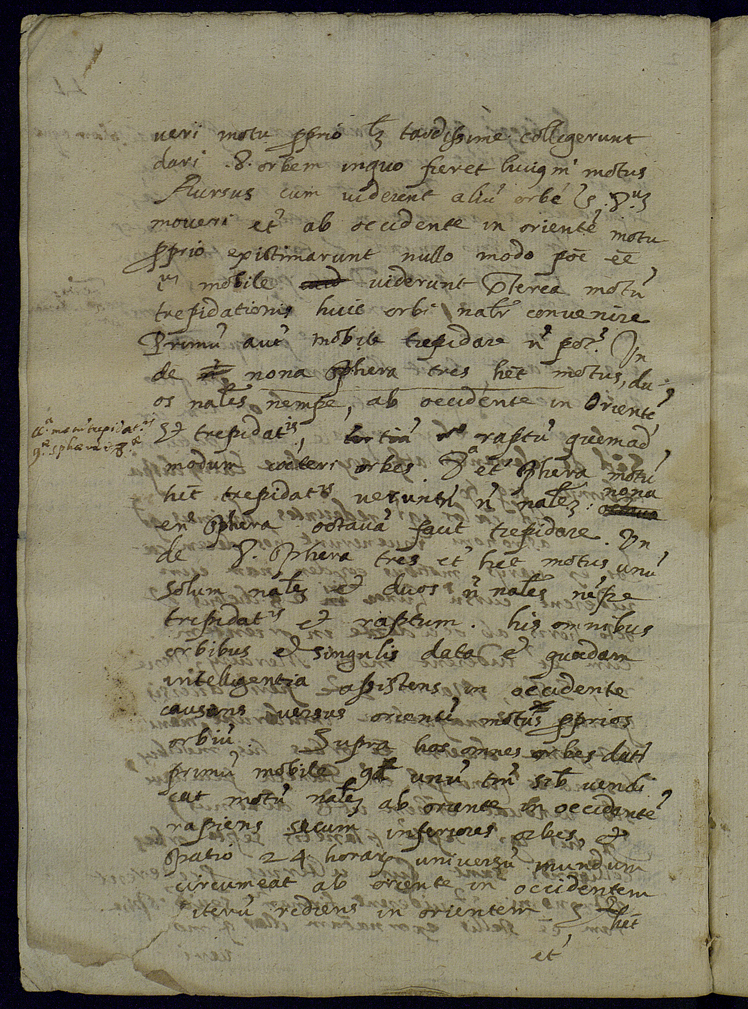 veri motu pprio lz tardissime colligerunt
dari .8. orbem in quo fieret huiqm' motus
Rursus cum viderent aliu' orbe' s. 8.um
moveri et' ab occidente in oriente' motu
pprio existimarunt nullo modo poe' ee'
mobile viderunt pterea motu'
trepidationis huic orbi natr' convenire
Primu' aut' mobile trepidare n' pot.' In
de nona sphera tres het motus, du-
os nales nempe, ab occidente in oriente'
et trepidatis, raptu' quemad
modum caeteri orbes. et sphera motu'
het trepidatis nalez: nona
en' sphera octava' facit trepidare. In
de 8. sphera tres et' het motus unu'
solum nalez et duos n' nales ne'pe
trepidatis et raptum. his omnibus
orbibus et singulis data e' quaedam
intelligentia assistens in occidente
causans versus oriente' motus pprios
orbiu'. Supra hos omnes orbes dat'
primu' mobile qd unu' tm' sibi vendi
cat motu' nalez ab oriente in occidente'
rapiens secum inferiores orbes, et
spatio 24 horar' universu' mundum
circumeat ab oriente in occidentem
iteru' rediens in orientem
het
et'